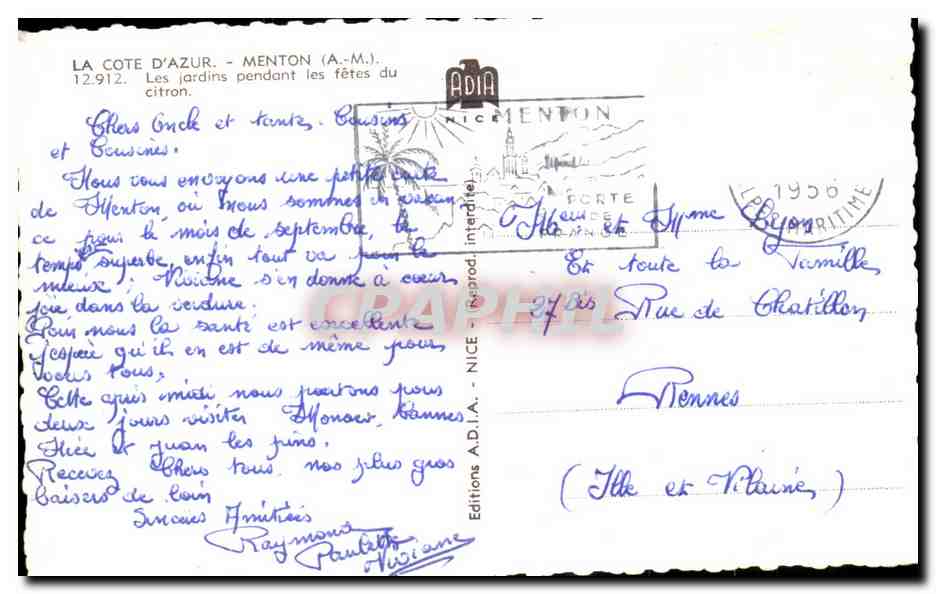 LA COTE D'AZUR. - MENTON (A.-M.).
12.912. Les jardins pendant les fêtes du
citron.
ADIA
NICE
Chers Oncle et tante. Cousins
et Cousines.
Nous vous envoyons une petite carte
de Menton, ou nous sommes en vacan
ce pour le mois de septembre, le
temps superbe, enfin tout va pour le
mieux, Viviane s'en donne à coeur
joie dans la verdure.
Pour nous la santé est excellente
j'espère qu'il en est de même pour
vous tous,
Cette après midi nous partons pour
deux jours visiter Monaco, Cannes
Nice et juan les pins.
Recevez Chers tous, nos plus gros
baisers de loin
Sincères Amitiés
Raymond
Paulette
Viviane
Editions A.D.I.A. - NICE - (Reprod. interdite)
MENTON
PORTE
DE
FRANCE
1956
MARITIME
Mr et Mme Lyon
Et toute la Famille
27 Bis Rue de Chatillon
Rennes
(Ille et Vilaine)
CRAPHIL